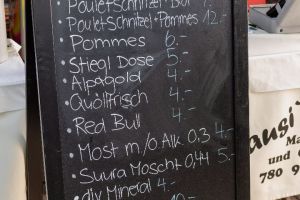 Pouletschnitzel-Brot 7.-
Pouletschnitzel+Pommes 12.-
Pommes 6.-
Stiegl Dose 5.-
Alpagold 4.-
Quöllfrisch 4.-
Red Bull 4.-
Most m/o Alk. 0.3 4.-
Suura Moscht 0,4l 5.-
div Mineral 4.-
ausi
Ma
und
780 9